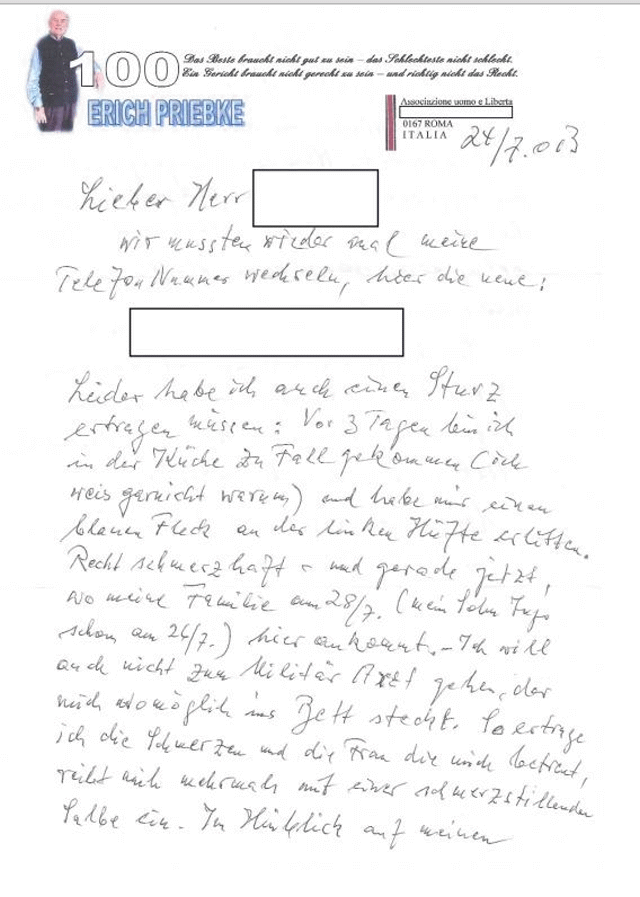 100 Das Beste braucht nicht gut zu sein – das Schlechteste nicht schlecht.
Ein Gericht braucht nicht gerecht zu sein – und richtig nicht das Recht.
ERICH PRIEBKE
Associazione uomo e Liberta
0167 ROMA
ITALIA
24/7.013
Lieber Herr
wir mussten wieder mal meine
Telefon Nummer wechseln, hier die neue:
Leider habe ich auch einen Sturz
ertragen müssen: Vor 3 Tagen bin ich
in der Küche zu Fall gekommen (ich
weis garnicht warum) und habe mir einen
blauen Fleck an der linken Hüfte erlitten.
Recht schmerzhaft - und gerade jetzt,
wo meine Familie am 28/7. (mein Sohn Ingo
schon am 26/7.) hier ankommt. - Ich will
auch nicht zum Militär Arzt gehen, der
mich womöglich ins Bett steckt. So ertrage
ich die Schmerzen und die Frau die mich betreut,
reibt mich mehrmals mit einer schmerzstillenden
Salbe ein. In Hinblick auf meinen